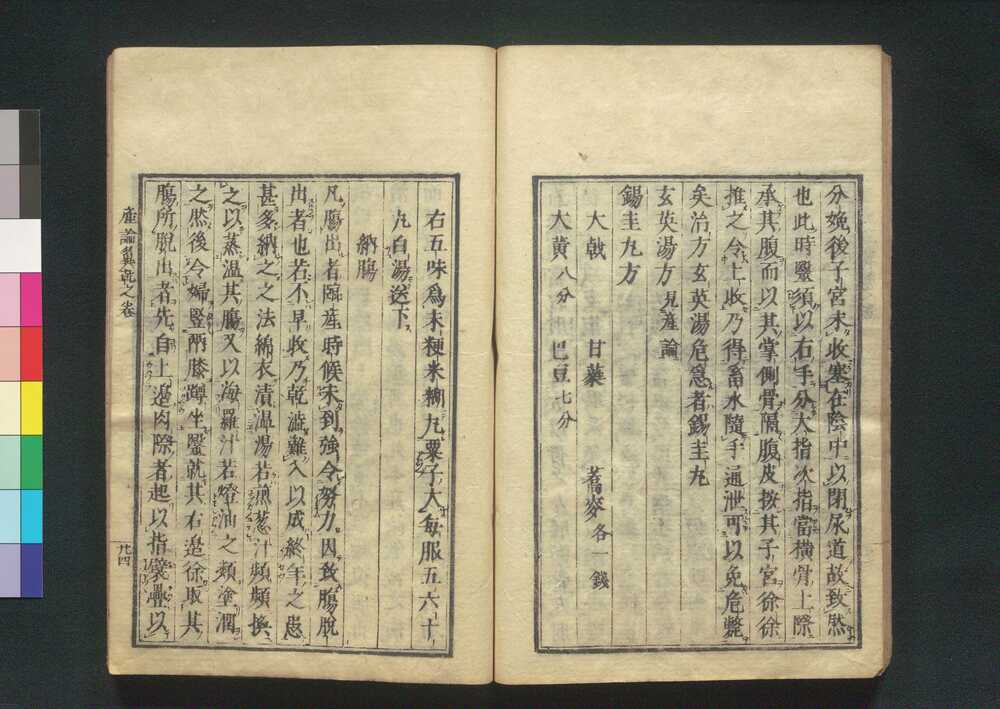 分娩後子宮未收塞在陰中以閉尿道故致然
也此時毉須以右手分大指次指當橫骨上際
承其腹而以其掌側骨隔腹皮按其子宮徐徐
推之令上收乃得畜水隨手通泄可以免危斃
矣治方玄英湯危急者錫圭丸
玄英湯方見產論
錫圭丸方
大戟 甘藁 蕎麥各一錢
大黃八分 巴豆七分
右五味爲末粳米糊丸粟子大每服五六十
丸白湯送下
納膓
凡膓出者臨產時候未到強令努力因致膓脫
出者也若不早收乃乾澁難入以成終年之患
甚多納之之法綿衣漬溫湯若煎葱汁頻頻換
之以蒸溫其膓又以海羅汁若燈油之類塗潤
之然後令婦豎兩膝蹲坐毉就其右邉徐取其
膓所脫出者先自上邉肉際者起以指襞疊以
產論翼乾之卷 廿四